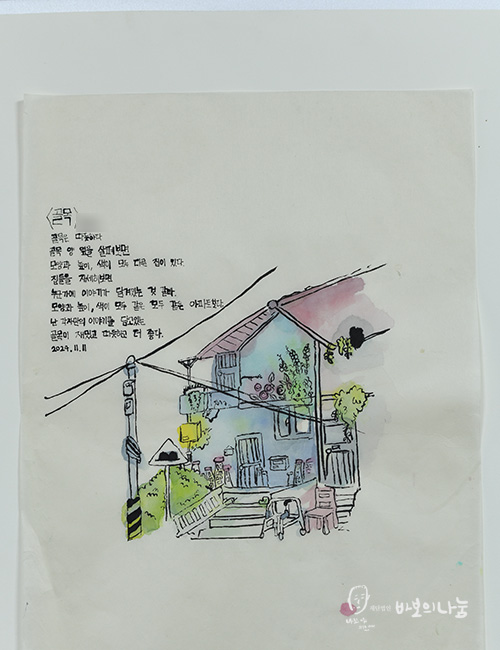 <골목>
골목은 따뜻하다
골목 양 옆을 살펴보면
모양과 높이, 색이 모두 다른 집이 있다.
집들을 자세히보면
누군가에 이야기가 담겨있는 것 같다.
모양과 높이, 색이 모두 같은 모두 같은 아파트보다.
난 각자만의 이야기를 담고있는
골목이 재밌고 따뜻하고 더 좋다.
2024.11.11
재단법인 바보의나눔